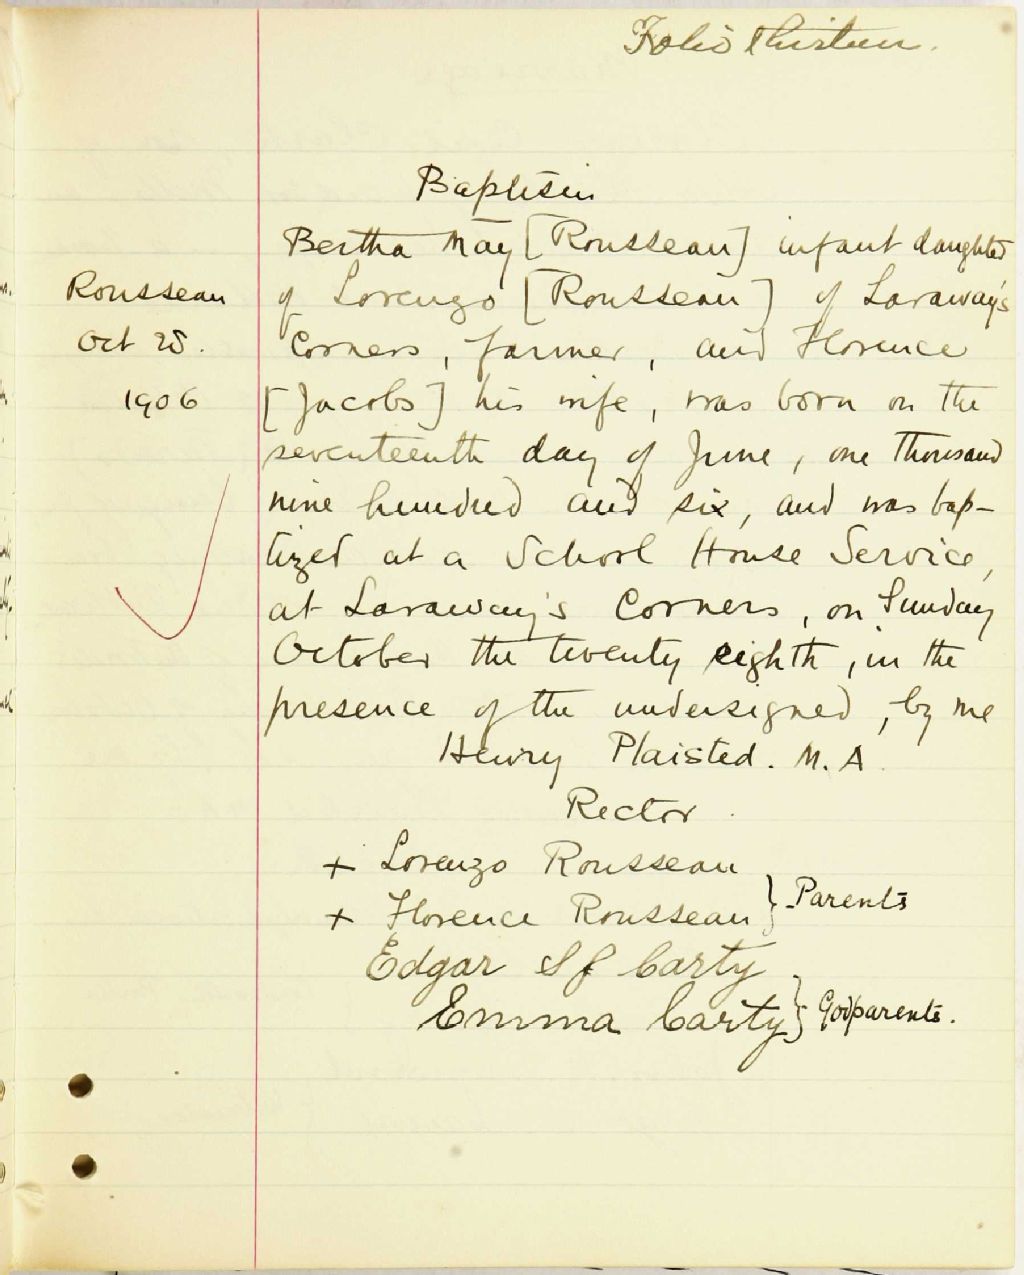 Folio thirteen.
Baptism
Bertha May [Rousseau] infant daughter
Rousseau
of Lorenzo [Rousseau] of Laraway's
Oct 28.
Corners, farmer, and Florence
1906
[Jacobs] his wife, was born on the
seventeenth day of June, one thousand
nine hundred and six, and was bap-
tized at a School House Service,
at Laraway's Corners, on Sunday
October the twenty eighth, in the
presence of the undersigned, by me
Henry Plaisted. M.A
Rector.
+ Lorenzo Rousseau
+ Florence Rousseau } Parents
Edgar Carty
Emma Carty } Godparents.